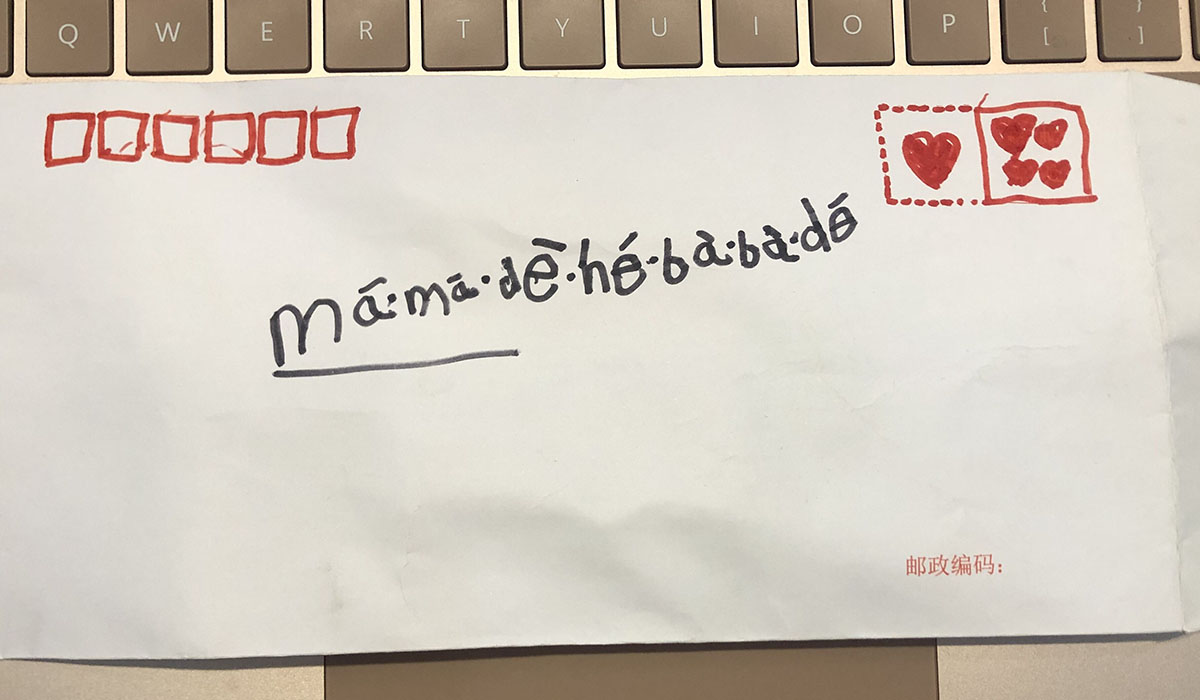 Q W E R T Y U I O P { [ } ]
má·mā·dē·hé·bà·bà·dé
邮政编码：